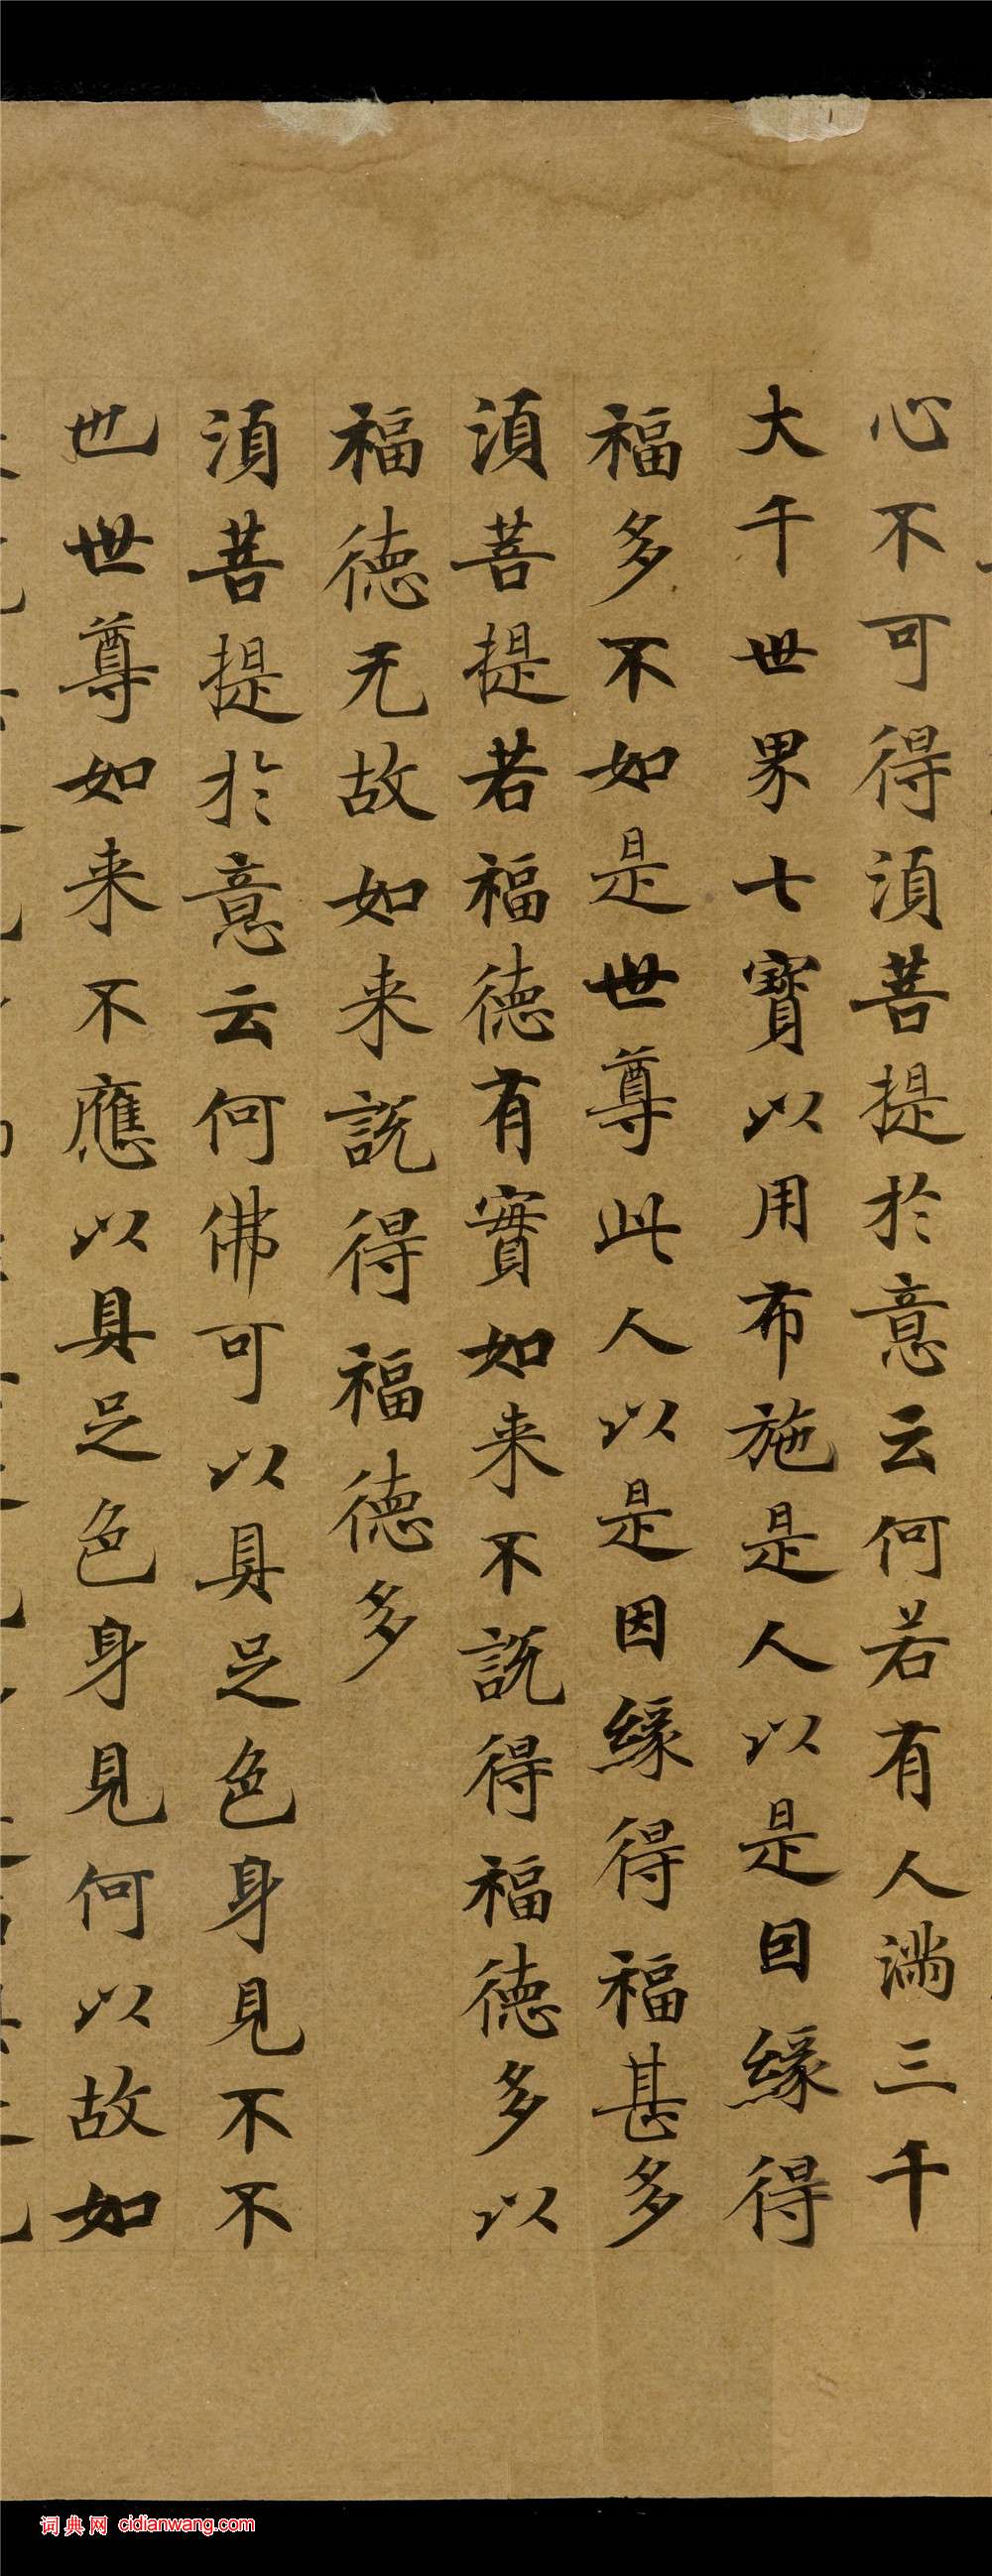 心不可得湏菩提於意云何若有人满三千
大千世界七寳以用布施是人以是囙緣得
福多不如是世尊此人以是因緣得福甚多
湏菩提若福德有實如来不説得福德多以
福德无故如来説得福德多
湏菩提於意云何佛可以具足色身見不不
也世尊如来不應以具足色身見何以故如
词典网 cidianwang.com